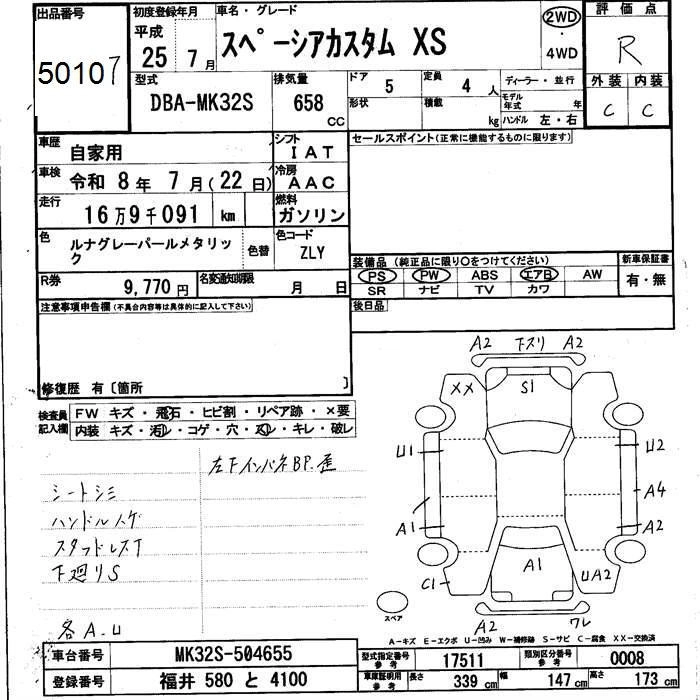 出品番号
50107
初度登録年月
平成
25 年 7 月
車名・グレード
スペーシアカスタム XS
2WD
・
4WD
評価点
R
外装 内装
C C
型式
DBA-MK32S
排気量
658
CC
ドア
5
定員
4 人
ディーラー・並行
形状
積載
kg
モデル年式 年
ハンドル 左・右
車歴
自家用
シフト
IAT
車検
令和 8 年 7 月 (22 日)
冷房
AAC
走行
16万9千091 km
燃料
ガソリン
色
ルナグレーパールメタリック
色替
色コード
ZLY
R券
9,770 円
名変通知期限
月 日
セールスポイント(正常に機能するものに限ります)
装備品(純正品に限り○をつけてください)
PS PW ABS エアB AW
SR ナビ TV カワ
新車保証書
有・無
後日品
注意事項申告欄(不具合内容等は具体的に記入して下さい)
修復歴 有〔箇所 〕
検査員記入欄
FW キズ・飛石・ヒビ割・リペア跡・×要
内装 キズ・汚れ・コゲ・穴・スレ・キレ・破レ
左下インパネBP.歪
シートシミ
ハンドルハゲ
スタッドレスT
下廻りS
各A.U
A2 下スリ A2
XX
S1
U1
U2
A4
A1
A2
C1
A1
UA2
A2
ワレ
スペア
A-キズ E-エクボ U-凹み W-補修跡 S-サビ C-腐食 XX-交換済
車台番号
MK32S-504655
型式指定番号
参考
17511
類別区分番号
参考
0008
登録番号
福井 580 と 4100
車庫証明用
参考
長さ
339 cm
幅
147 cm
高さ
173 cm